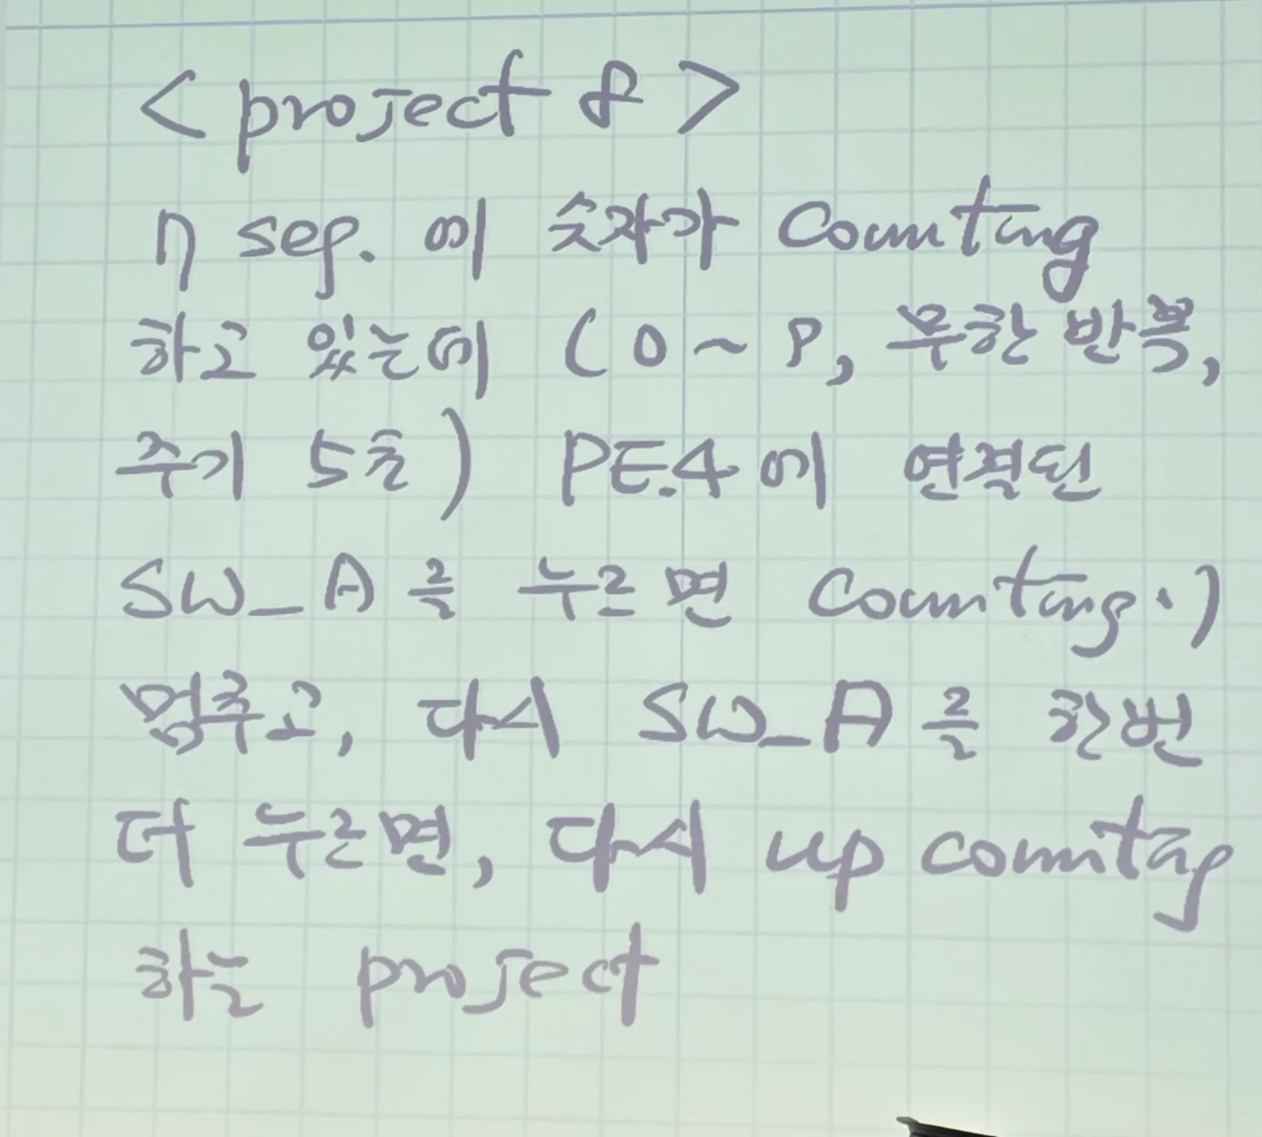 <project 8>
7 seg. 에 숫자가 Counting
하고 있는데 (0~9, 무한 반복,
주기 5초) PE.4에 연결된
SW_A를 누르면 Counting이
멈추고, 다시 SW_A를 한번
더 누르면, 다시 up counting
하는 project